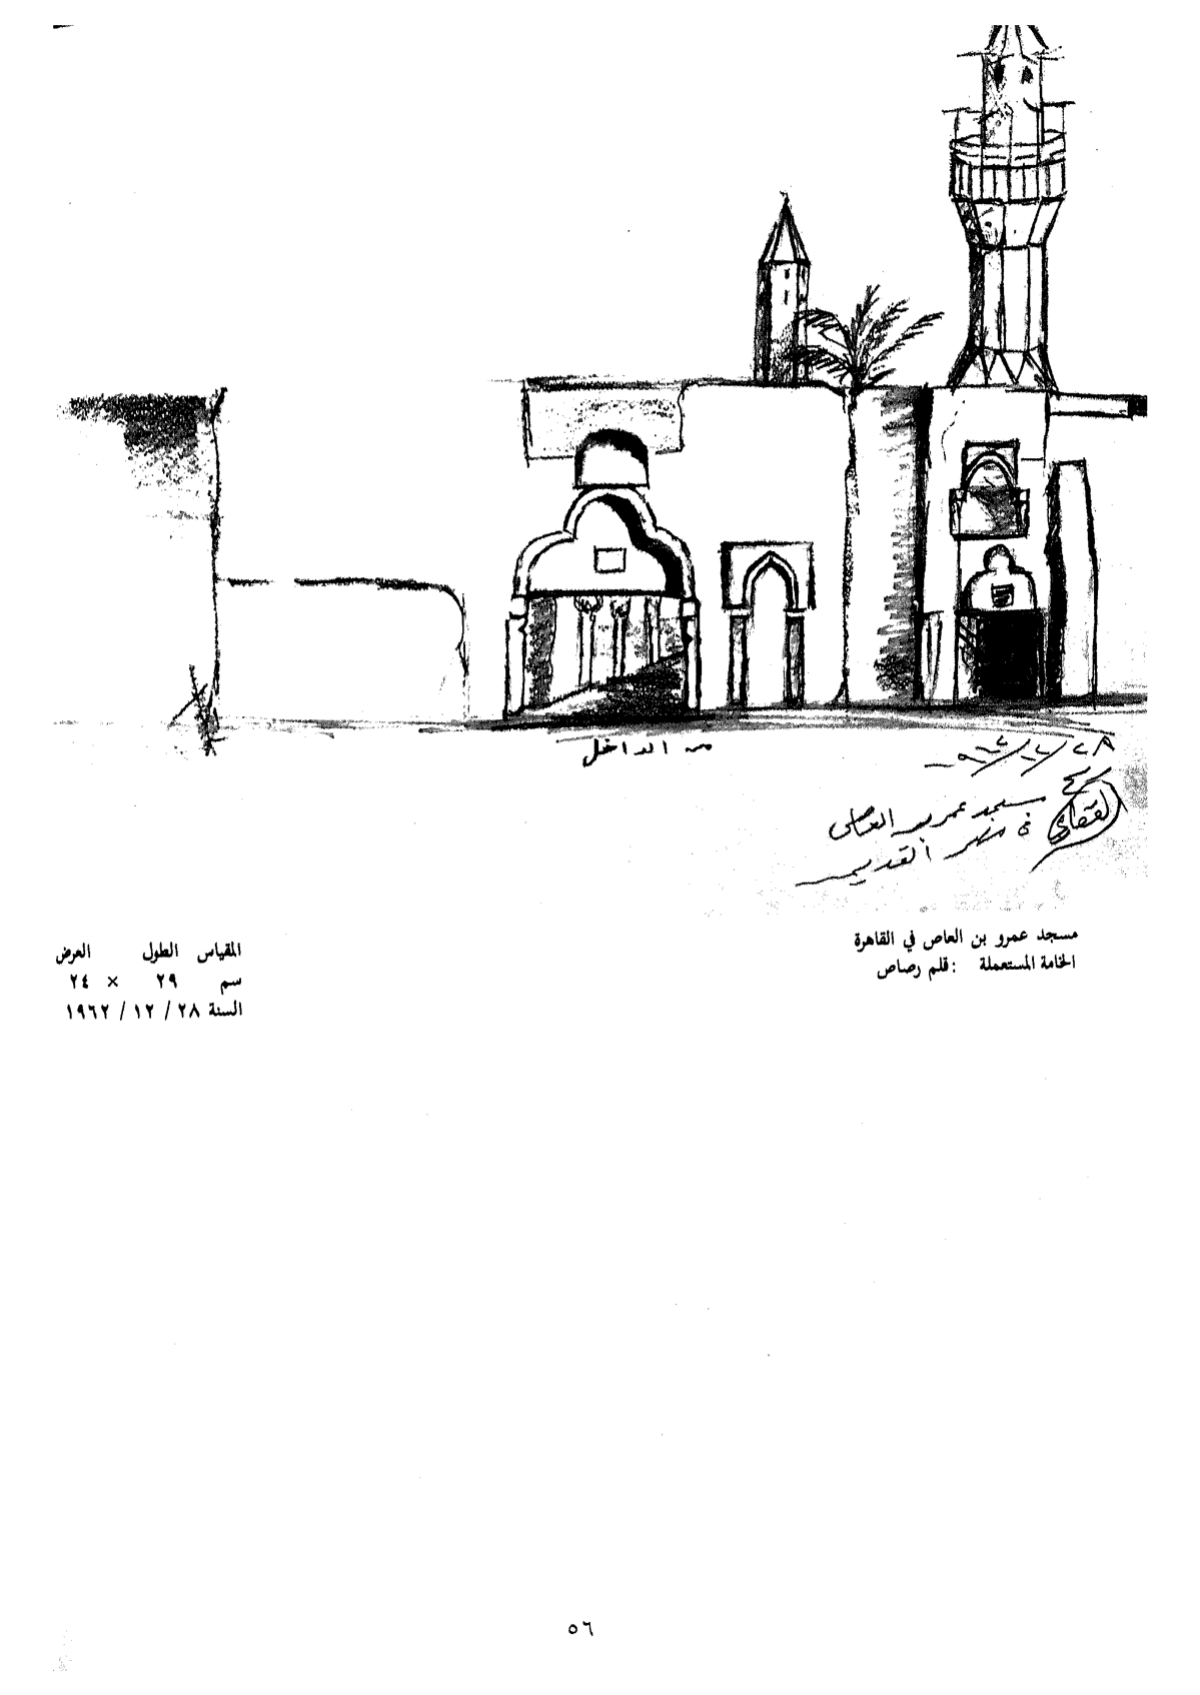 من الداخل
١٩٦٢/١٢/٢٨
مسجد عمرو بن العاص
في مصر القديمة
مسجد عمرو بن العاص في القاهرة
الخامة المستعملة : قلم رصاص
المقياس الطول العرض
سم ٢٩ × ٢٤
السنة ٢٨ / ١٢ / ١٩٦٢
٥٦